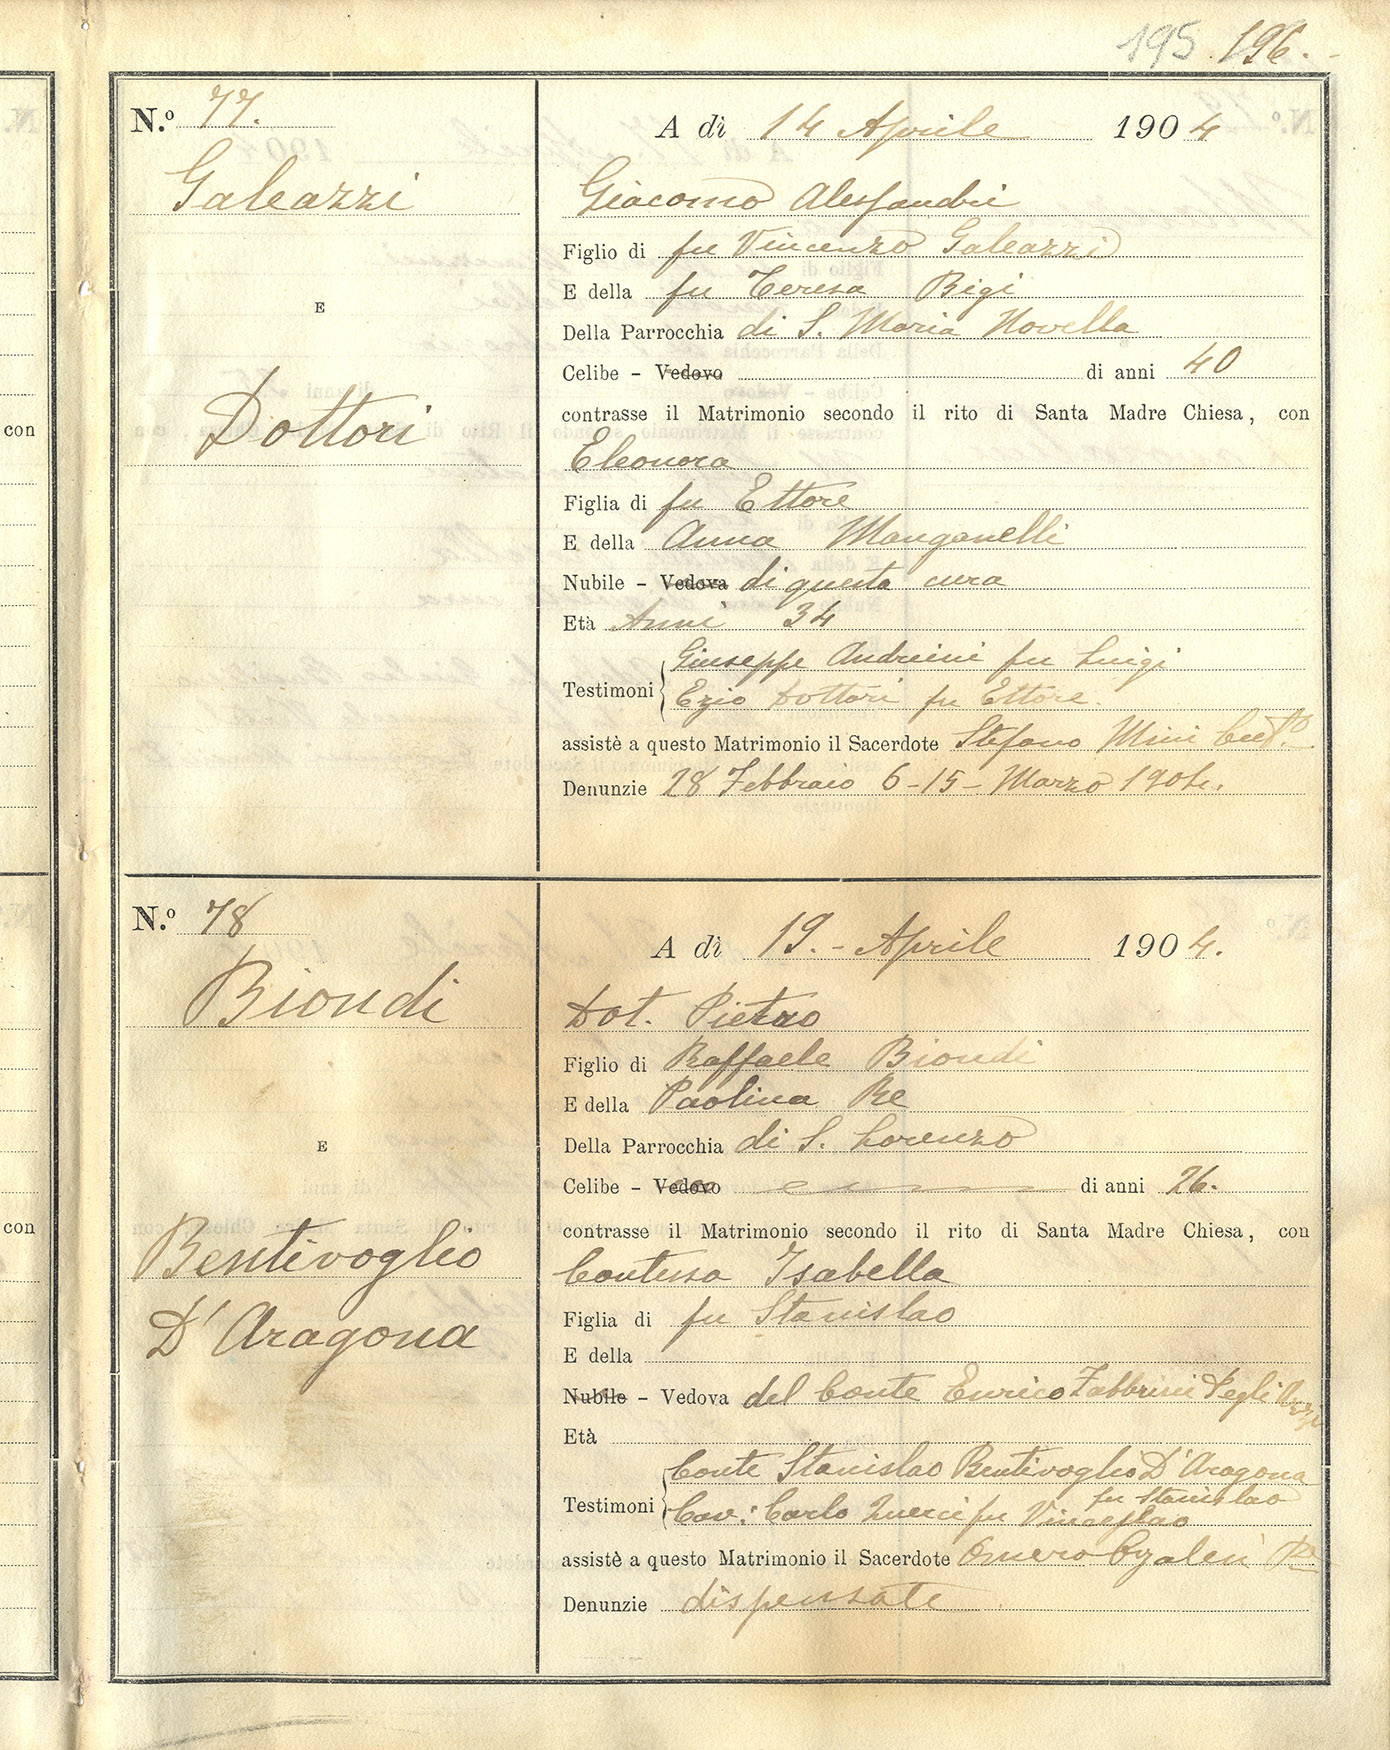 195 196.
N.º 77.
Galeazzi
E
Dottori
A dì 14 Aprile 1904
Giacomo Alessandri
Figlio di fu Vincenzo Galeazzi
E della fu Teresa Bigi
Della Parrocchia di S. Maria Novella
Celibe - Vedovo di anni 40
contrasse il Matrimonio secondo il rito di Santa Madre Chiesa, con
Eleonora
Figlia di fu Ettore
E della Anna Manganelli
Nubile - Vedova di questa cura
Età Anni 34
Testimoni Giuseppe Andreini fu Luigi
Ezio Dottori fu Ettore.
assistè a questo Matrimonio il Sacerdote Stefano Mini
Denunzie 28 Febbraio 6-15- Marzo 1904.
N.º 78
Biondi
E
Bentivoglio
D'Aragona
A dì 19.- Aprile 1904.
Dot. Pietro
Figlio di Raffaele Biondi
E della Paolina Re
Della Parrocchia di S. Lorenzo
Celibe - Vedovo di anni 26.
contrasse il Matrimonio secondo il rito di Santa Madre Chiesa, con
Contessa Isabella
Figlia di fu Stanislao
E della
Nubile - Vedova del Conte Enrico Fabbrini Degli
Età
Testimoni Conte Stanislao Bentivoglio D'Aragona
fu Stanislao
Cav: Carlo fu Vinceslao
assistè a questo Matrimonio il Sacerdote Omero
Denunzie dispensate
con
con